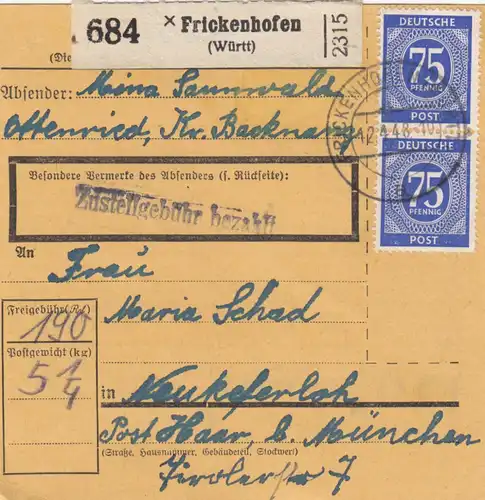 684 × Frickenhofen
(Württ)
2315
DEUTSCHE
75
PFENNIG
POST
DEUTSCHE
75
PFENNIG
POST
12.4.48
(Die
Absender: Mina Sannwald
Ottenried, Kr. Backnang
Besondere Vermerke des Absenders (s. Rückseite):
Zustellgebühr bezahlt
An
Frau
Maria Schad
Freigebühr (Rℳ)
190
Postgewicht (kg)
5 1/4
in Neukeferloh
Post Haar, b. München
(Straße, Hausnummer, Gebäudeteil, Stockwerk)
Tirolerstr 7